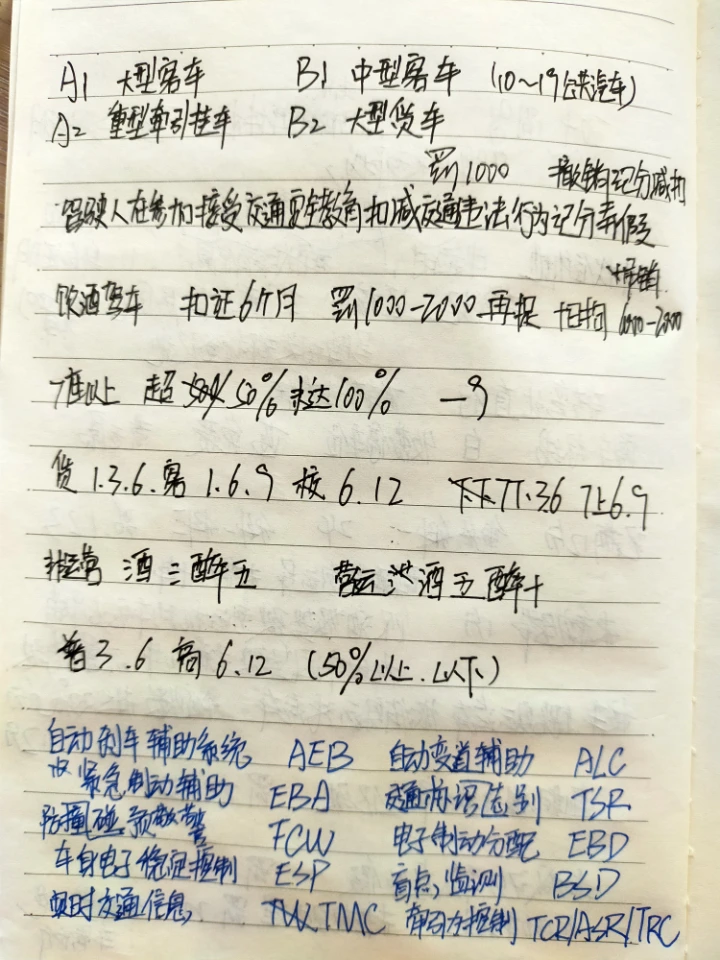 A1 大型客车 B1 中型客车 (10~19公共汽车)
A2 重型牵引挂车 B2 大型货车
罚1000 撤销记分减扣
驾驶人在参加接受交通安全教育扣减交通违法行为记分弄假
饮酒驾车 扣证6个月 罚1000-2000 再捉 十日拘 1000-2000
吊销
7座以上 超 50% 未达100% 一9
货1.3.6.客1.6.9 校6.12 7下1.3.6 7上6.9
非运营 酒三醉五 营运 酒五醉十
普3.6 高6.12 (50%以上.以下)
自动刹车辅助系统 AEB 自动变道辅助 ALC
紧急制动辅助 EBA 交通标识识别 TSR
防撞碰预警 FCW 电子制动分配 EBD
车身电子稳定控制 ESP 盲点监测 BSD
实时交通信息 TMC 牵引力控制 TCR/ASR/TRC